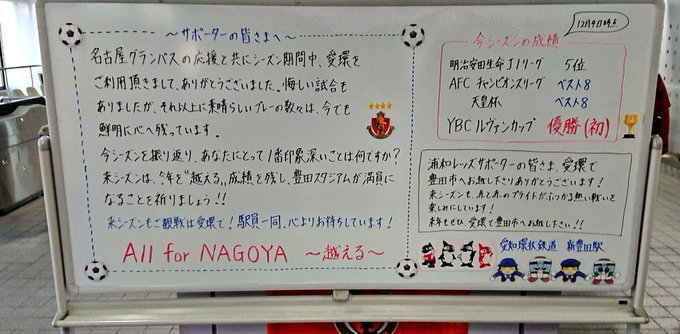 ～サポーターの皆さまへ～
名古屋グランパスの応援と共にシーズン期間中、愛環を
ご利用頂きまして、ありがとうございました。悔しい試合も
ありましたが、それ以上に素晴らしいプレーの数々は、今でも
鮮明に心へ残っています。
今シーズンを振り返り、あなたにとって1番印象深いことは何ですか?
来シーズンは、今年を"越える"成績を残し、豊田スタジアムが満員に
なることを祈りましょう!!
来シーズンもご観戦は愛環で!駅員一同、心よりお待ちしています!
All for NAGOYA ～越える～
12月9日時点
今シーズンの成績
明治安田生命J1リーグ 5位
AFCチャンピオンズリーグ ベスト8
天皇杯 ベスト8
YBCルヴァンカップ 優勝(初)
浦和レッズサポーターの皆さま、愛環で
豊田市へお越し下さりありがとうございます!
来シーズンも、赤と赤のプライドがぶつかる熱い戦いを
楽しみにしています!
来年もぜひ、愛環で豊田市へお越し下さい!!
愛知環状鉄道 新豊田駅